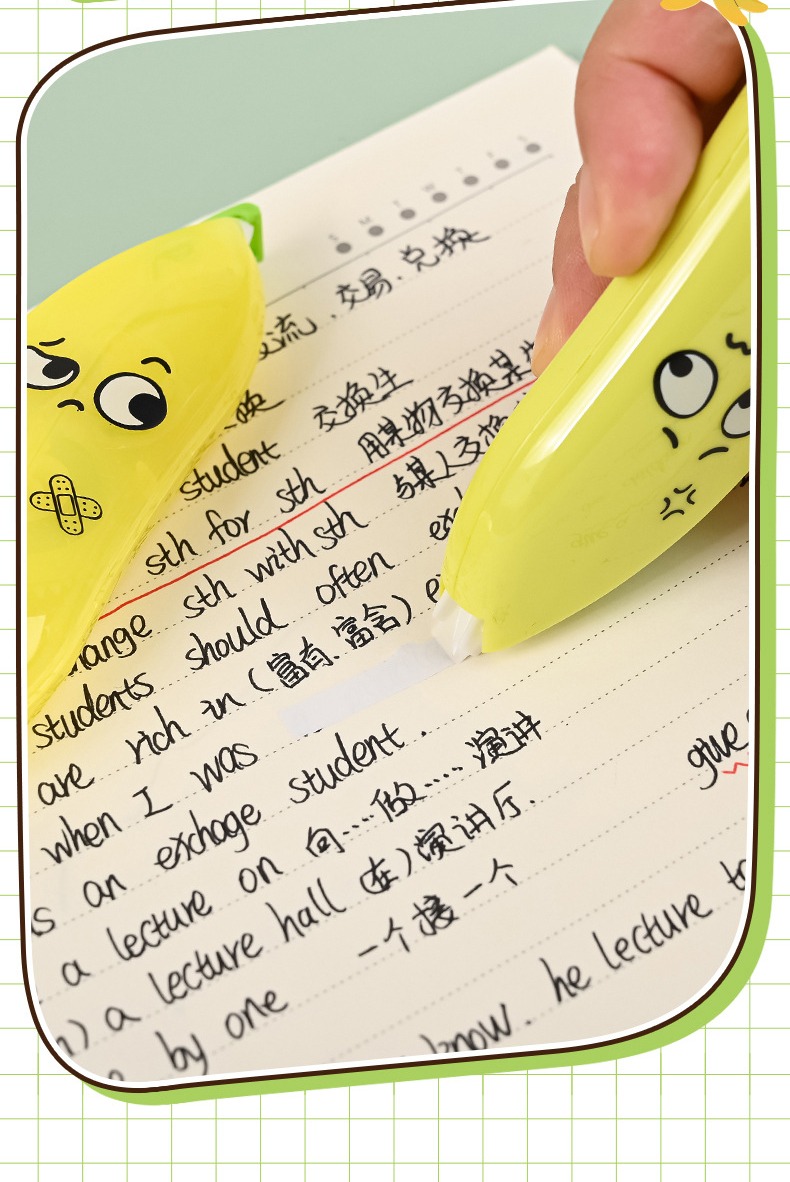 S M T W T F S
交流.交易.兑换
换
student 交换生
sth for sth 用某物交换某
sth with sth 与某人交换
hange
students should often
are rich in (富有.富含)
when I was
s an exchage student.
a lecture on 向....做.... 演讲
) a lecture hall (在) 演讲厅.
by one 一个接一个
give
know. he lecture to